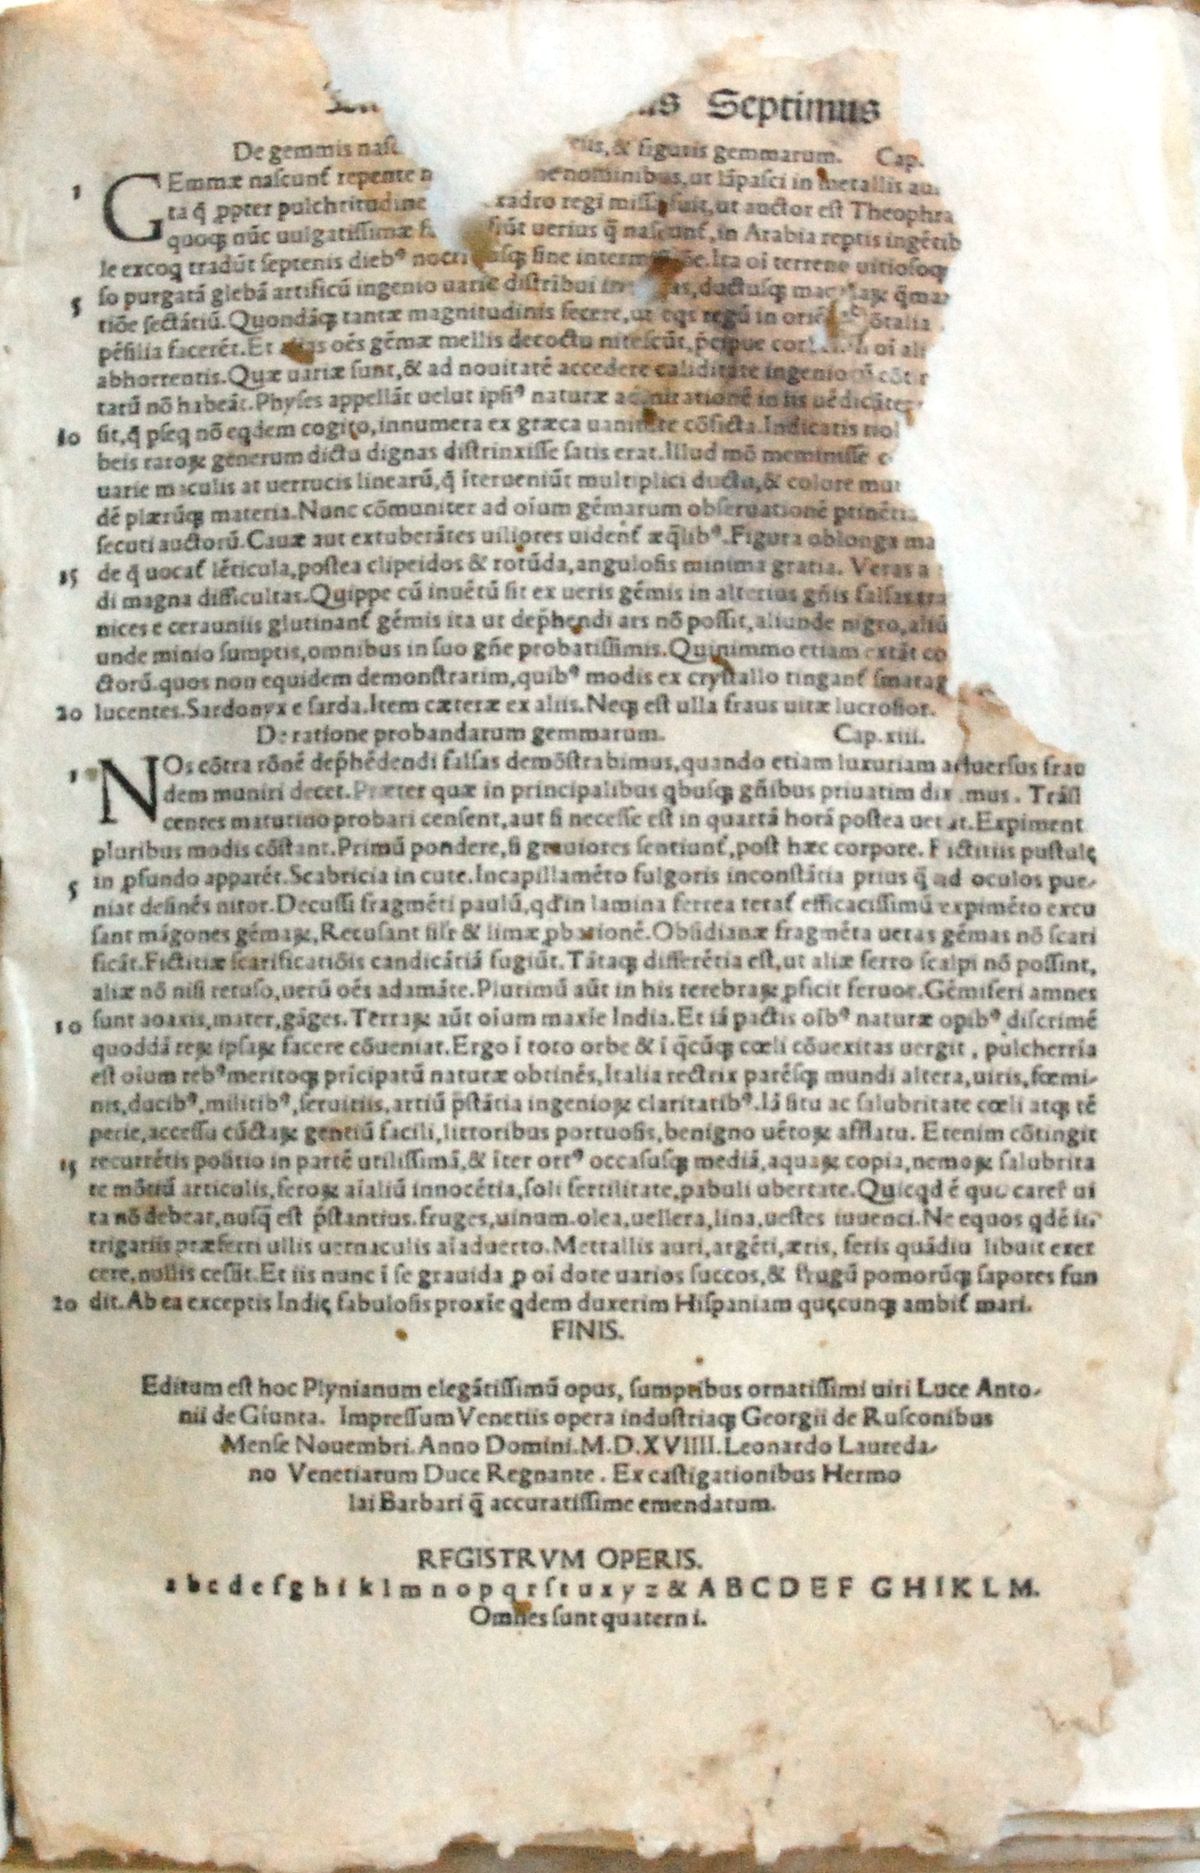 Septimus
De gemmis nasc & figuris gemmarum. Cap.
1 GEmmæ nascunt̃ repente n nominibus, ut lãpasci in metallis
ta q̃ ꝓpter pulchritudine regi missa fuit, ut auctor est Theophra
quoq; nũc uulgatissimæ fiũt uerius q̃ nascunt̃, in Arabia reptis ingẽtib
le excoq tradũt septenis dieb⁹ sine Ita oi terreno uitiosoq;
5 so purgatã glebã artificũ ingenio uarie distribui
tiõe sectãtiũ. Quondãq; tantæ magnitudinis fecere, ut eqs regũ in
pẽsilia facerẽt. Et oẽs gẽmæ mellis decoctu nitescũt, oi
abhorrentis. Quæ uariæ sunt, & ad nouitatẽ accedere caliditate ingenio
tatũ nõ habeãt. Physes appellãt uelut ipsi⁹ naturæ admirationẽ in iis uẽdicãtes
10 sit, q̃ pseq nõ eqdem cogito, innumera ex græca uanitate cõficta. Indicatis nol
beis raroꝝ generum dictu dignas distrinxisse satis erat. Illud mõ meminisse
uarie maculis at uerrucis linearũ, q̃ ĩterueniũt multiplici ductu, & colore mu
dẽ plærũq; materia. Nunc cõmuniter ad oĩum gẽmarum obseruationẽ ptinẽtia
secuti auctorũ. Cauæ aut extuberãtes uiliores uident̃ æq̃lib⁹. Figura oblonga ma
15 de q̃ uocat̃ lẽticula, postea clipeidos & rotũda, angulosis minima gratia. Veras a
di magna difficultas. Quippe cũ inuẽtũ sit ex ueris gẽmis in alterius gñis falsas tra
nices e cerauniis glutinant̃ gẽmis ita ut dep̃hendi ars nõ possit, aliunde nigro, aliũ
unde minio sumptis, omnibus in suo gñe probatissimis. Quinimmo etiam extãt cõ
ctorũ. quos non equidem demonstrarim, quib⁹ modis ex crystallo tingant̃ smarag
20 lucentes. Sardonyx e sarda. Item cæteræ ex aliis. Neq; est ulla fraus uitæ lucrosior.
De ratione probandarum gemmarum. Cap. xiii.
1 NOs cõtra rõnẽ dep̃hẽdendi falsas demõstrabimus, quando etiam luxuriam aduersus frau
dem muniri decet. Præter quæ in principalibus qbusq; gñibus priuatim diximus. Trãsl
centes matutino probari censent, aut si necesse est in quartã horã postea uetãt. Expiment
pluribus modis cõstant. Primũ pondere, si grauiores sentiunt̃, post hæc corpore. Fictitiis pustulę
5 in ꝓfundo apparẽt. Scabricia in cute. Incapillamẽto fulgoris inconstãtia prius q̃ ad oculos per-
niat definẽs nitor. Decussi fragmẽti paulũ, qd̃ in lamina ferrea terat̃ efficacissimũ expimẽto excu
sant mãgones gẽmaꝝ, Recusant silr & limæ ꝓbationẽ. Obsidianæ fragmẽta ueras gẽmas nõ scari
ficãt. Fictitiæ scarificatiõis candicãtiã fugiũt. Tãtaq; differẽtia est, ut aliæ ferro scalpi nõ possint,
aliæ nõ nisi retuso, uerũ oẽs adamãte. Plurimũ aũt in his terebraꝝ ꝓficit feruor. Gẽmiferi amnes
10 sunt aoaxis, mater, gãges. Terraꝝ aũt oĩum maxĩe India. Et iã pactis oĩb⁹ naturæ opib⁹ discrimẽ
quoddã reꝝ ipsaꝝ facere cõueniat. Ergo ĩ toto orbe & ĩ q̃cũq; cœli cõuexitas uergit, pulcherrĩa
est oĩum reb⁹ meritoq; prĩcipatũ naturæ obtinẽs, Italia rectrix parẽsq; mundi altera, uiris, fœmi-
nis, ducib⁹, militib⁹, seruitiis, artiũ p̃stãtia ingenioꝝ claritatib⁹. Iã situ ac salubritate cœli atq; tẽ
perie, accessu cũctaꝝ gentiũ facili, littoribus portuosis, benigno uẽtoꝝ afflatu. Etenim cõtingit
15 recurrẽtis positio in partẽ utilissimã, & ĩter ort⁹ occasusq; mediã, aquaꝝ copia, nemoꝝ salubrita
te mõtiũ articulis, feroꝝ aĩaliũ innocẽtia, soli fertilitate, pabuli ubertate. Quicqd ẽ quo caref ui
ta nõ debeat, nusq̃ est p̃stantius. fruges, uinum. olea, uellera, lina, uestes iuuenci. Ne equos qdẽ in
trigariis præferri ullis uernaculis aĩaduerto. Mettallis auri, argẽti, æris, feris quãdiu libuit exer
cere, nullis cessit. Et iis nunc ĩ se grauida ꝓ oĩ dote uarios succos, & frugũ pomorũq; sapores fun
20 dit. Ab ea exceptis Indię fabulosis proxĩe qdem duxerim Hispaniam quęcunq; ambit̃ mari.
FINIS.
Editum est hoc Plynianum elegãtissimũ opus, sumptibus ornatissimi uiri Luce Anto-
nii de Giunta. Impressum Venetiis opera industriaq; Georgii de Rusconibus
Mense Nouembri. Anno Domini. M.D.XVIIII. Leonardo Laureda-
no Venetiarum Duce Regnante. Ex castigationibus Hermo
lai Barbari q̃ accuratissime emendatum.
REGISTRVM OPERIS.
a b c d e f g h i k l m n o p q r s t u x y z & A B C D E F G H I K L M.
Omnes sunt quaterni.